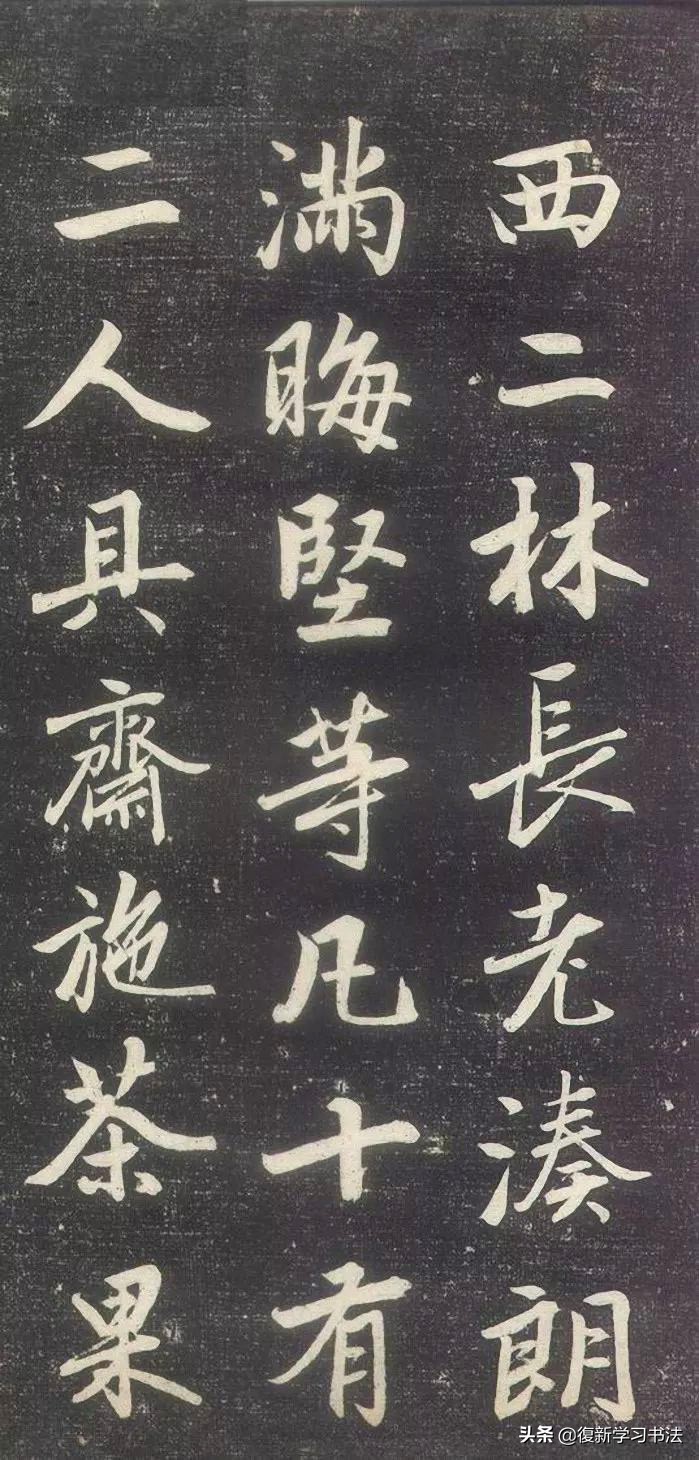 西二林長老湊朗
滿晦堅等凡十有
二人具齋施茶果
头条 @復新学习书法